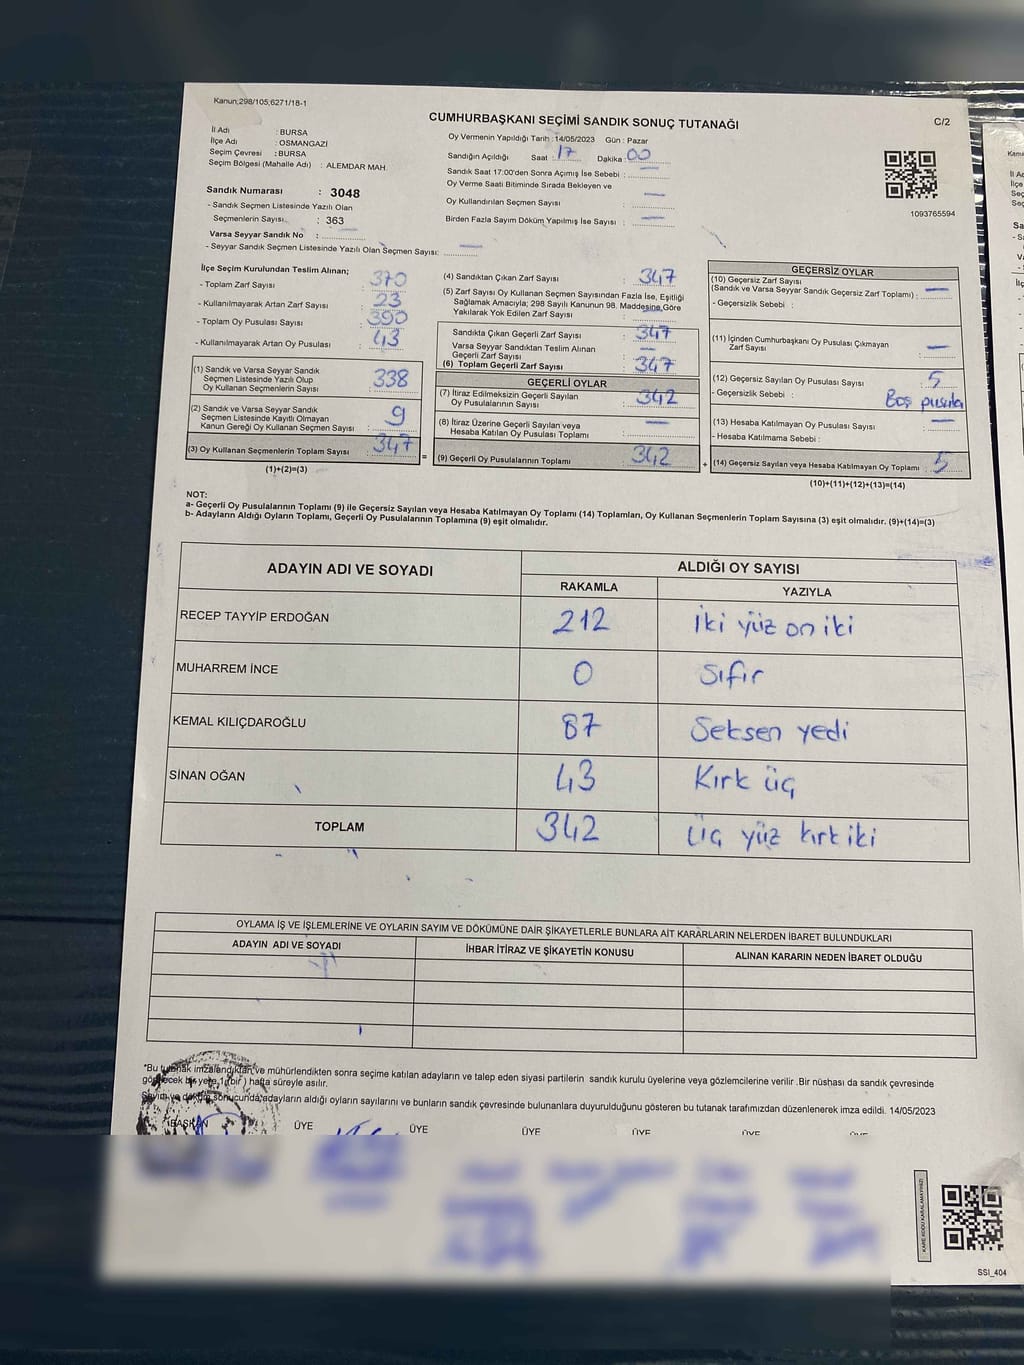 Kanun;298/105,6271/18-1
CUMHURBAŞKANI SEÇİMİ SANDIK SONUÇ TUTANAĞI
C/2
İl Adı : BURSA
İlçe Adı : OSMANGAZİ
Seçim Çevresi : BURSA
Seçim Bölgesi (Mahalle Adı) : ALEMDAR MAH.
Sandık Numarası : 3048
- Sandık Seçmen Listesinde Yazılı Olan
Seçmenlerin Sayısı : 363
Varsa Seyyar Sandık No :
- Seyyar Sandık Seçmen Listesinde Yazılı Olan Seçmen Sayısı:
Oy Vermenin Yapıldığı Tarih :14/05/2023 Gün : Pazar
Sandığın Açıldığı Saat : 17 Dakika : 00
Sandık Saat 17:00'den Sonra Açımış İse Sebebi : —
Oy Verme Saati Bitiminde Sırada Bekleyen ve
Oy Kullandırılan Seçmen Sayısı : —
Birden Fazla Sayım Döküm Yapılmış İse Sayısı : —
1093765594
İlçe Seçim Kurulundan Teslim Alınan;
- Toplam Zarf Sayısı : 370
- Kullanılmayarak Artan Zarf Sayısı : 23
- Toplam Oy Pusulası Sayısı : 390
- Kullanılmayarak Artan Oy Pusulası : 43
(1) Sandık ve Varsa Seyyar Sandık
Seçmen Listesinde Yazılı Olup
Oy Kullanan Seçmenlerin Sayısı : 338
(2) Sandık ve Varsa Seyyar Sandık
Seçmen Listesinde Kayıtlı Olmayan
Kanun Gereği Oy Kullanan Seçmen Sayısı : 9
(3) Oy Kullanan Seçmenlerin Toplam Sayısı : 347
(1)+(2)=(3)
(4) Sandıktan Çıkan Zarf Sayısı : 347
(5) Zarf Sayısı Oy Kullanan Seçmen Sayısından Fazla İse, Eşitliği
Sağlamak Amacıyla; 298 Sayılı Kanunun 98. Maddesine Göre
Yakılarak Yok Edilen Zarf Sayısı : —
Sandıkta Çıkan Geçerli Zarf Sayısı : 347
Varsa Seyyar Sandıktan Teslim Alınan
Geçerli Zarf Sayısı : —
(6) Toplam Geçerli Zarf Sayısı : 347
GEÇERLİ OYLAR
(7) İtiraz Edilmeksizin Geçerli Sayılan
Oy Pusulalarının Sayısı : 342
(8) İtiraz Üzerine Geçerli Sayılan veya
Hesaba Katılan Oy Pusulası Toplamı : —
(9) Geçerli Oy Pusulalarının Toplamı : 342
GEÇERSİZ OYLAR
(10) Geçersiz Zarf Sayısı
(Sandık ve Varsa Seyyar Sandık Geçersiz Zarf Toplamı) : —
- Geçersizlik Sebebi :
(11) İçinden Cumhurbaşkanı Oy Pusulası Çıkmayan
Zarf Sayısı : —
(12) Geçersiz Sayılan Oy Pusulası Sayısı : 5
- Geçersizlik Sebebi : Boş pusula
(13) Hesaba Katılmayan Oy Pusulası Sayısı : —
- Hesaba Katılmama Sebebi :
(14) Geçersiz Sayılan veya Hesaba Katılmayan Oy Toplamı : 5
(10)+(11)+(12)+(13)=(14)
NOT:
a- Geçerli Oy Pusulalarının Toplamı (9) ile Geçersiz Sayılan veya Hesaba Katılmayan Oy Toplamı (14) Toplamları, Oy Kullanan Seçmenlerin Toplam Sayısına (3) eşit olmalıdır. (9)+(14)=(3)
b- Adayların Aldığı Oyların Toplamı, Geçerli Oy Pusulalarının Toplamına (9) eşit olmalıdır.
ADAYIN ADI VE SOYADI ALDIĞI OY SAYISI
RAKAMLA YAZIYLA
RECEP TAYYİP ERDOĞAN 212 iki yüz on iki
MUHARREM İNCE 0 Sıfır
KEMAL KILIÇDAROĞLU 87 Seksen yedi
SİNAN OĞAN 43 Kırk üç
TOPLAM 342 üç yüz kırk iki
OYLAMA İŞ VE İŞLEMLERİNE VE OYLARIN SAYIM VE DÖKÜMÜNE DAİR ŞİKAYETLERLE BUNLARA AİT KARARLARIN NELERDEN İBARET BULUNDUKLARI
ADAYIN ADI VE SOYADI İHBAR İTİRAZ VE ŞİKAYETİN KONUSU ALINAN KARARIN NEDEN İBARET OLDUĞU
*Bu tutanak imzalandıktan ve mühürlendikten sonra seçime katılan adayların ve talep eden siyasi partilerin sandık kurulu üyelerine veya gözlemcilerine verilir .Bir nüshası da sandık çevresinde
görülecek bir yere 1 (bir ) hafta süreyle asılır.
Sayım ve döküm sonucunda,adayların aldığı oyların sayılarını ve bunların sandık çevresinde bulunanlara duyurulduğunu gösteren bu tutanak tarafımızdan düzenlenerek imza edildi. 14/05/2023
BAŞKAN ÜYE ÜYE ÜYE ÜYE ÜYE
KARE KODU KARALAMAYINIZ!
SSI_404